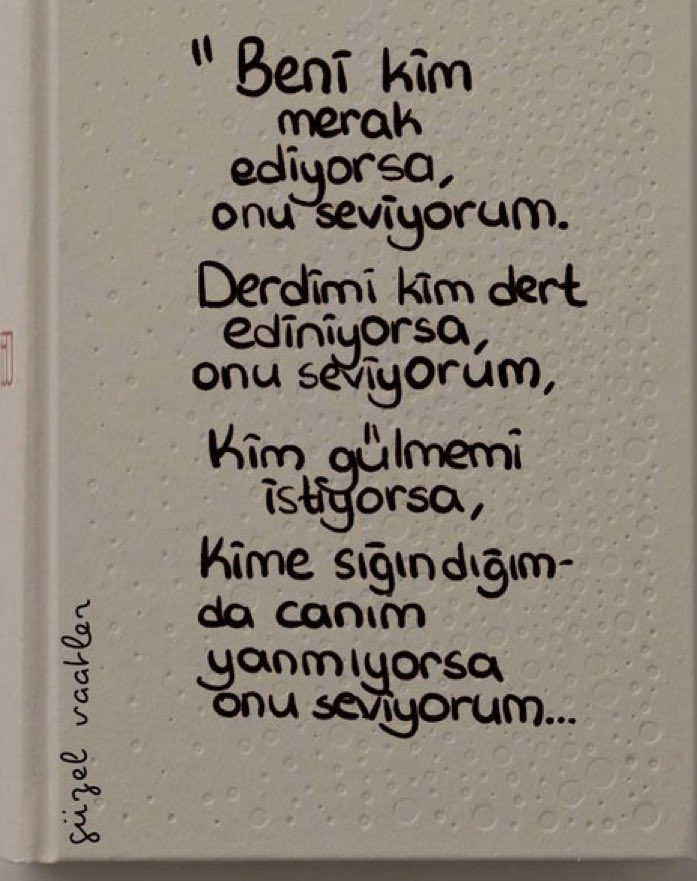 "Beni kim
merak
ediyorsa,
onu seviyorum.
Derdimi kim dert
ediniyorsa,
onu seviyorum,
Kim gülmemi
istiyorsa,
Kime sığındığım-
da canım
yanmıyorsa
onu seviyorum...
güzel vaatler